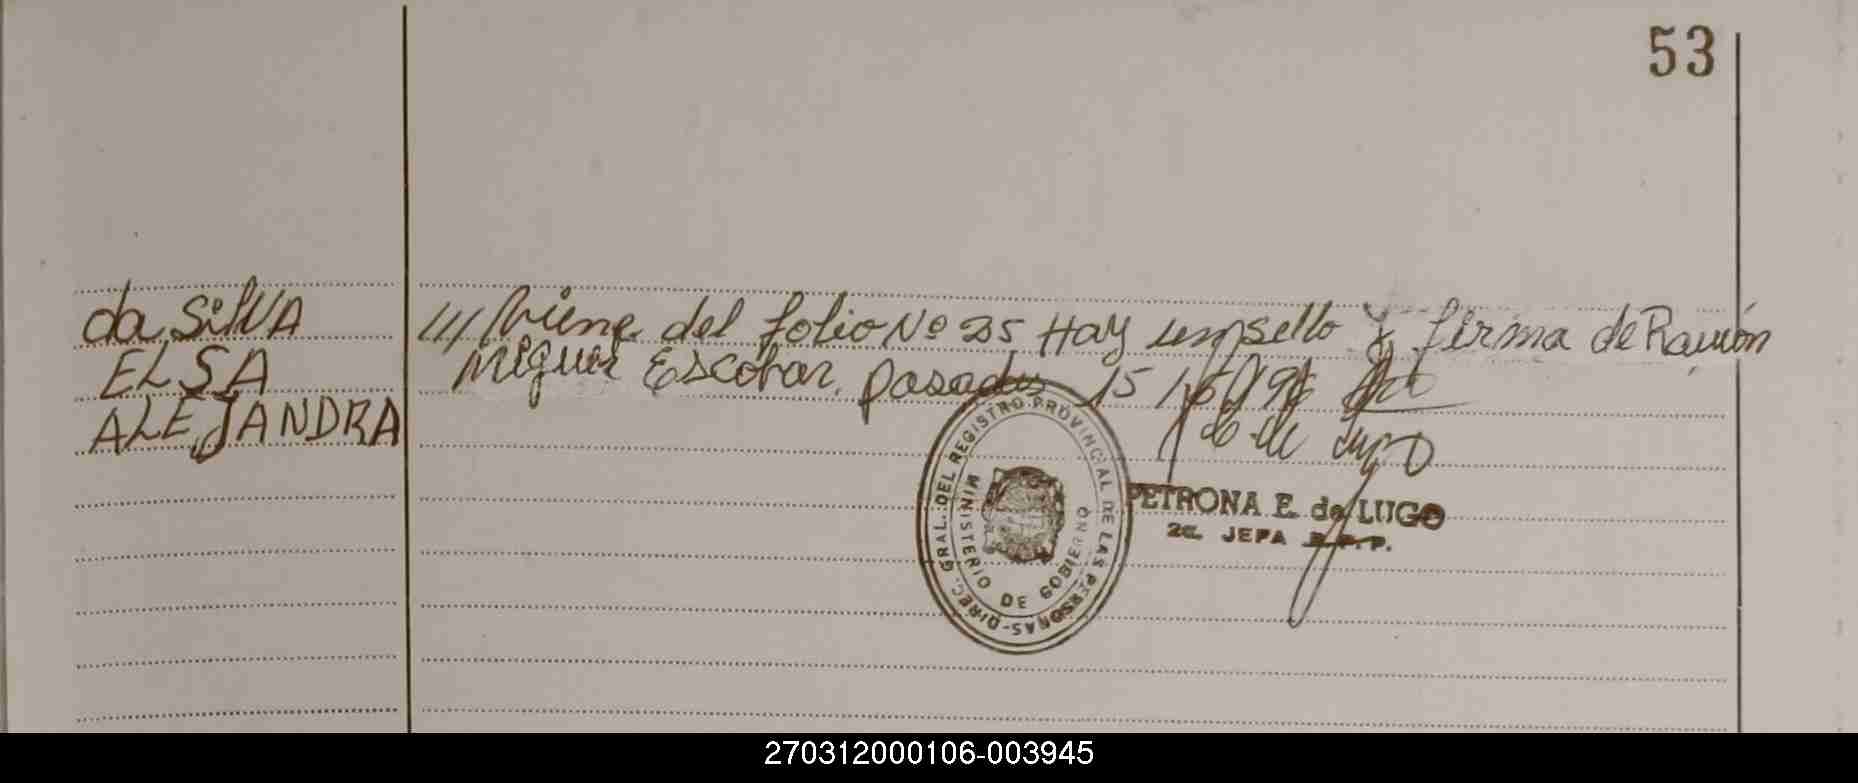 53
da SilVA
ELSA
ALEJANDRA
/// Viene del folio Nº 25 Hay un sello y firma de Ramón
Miguel Escobar. Pasados 15
de Lugo
DIREC. GRAL. DEL REGISTRO PROVINCIAL DE LAS PERSONAS-
MINISTERIO DE GOBIERNO
PETRONA E. de LUGO
2a. JEFA R.P.P.
270312000106-003945